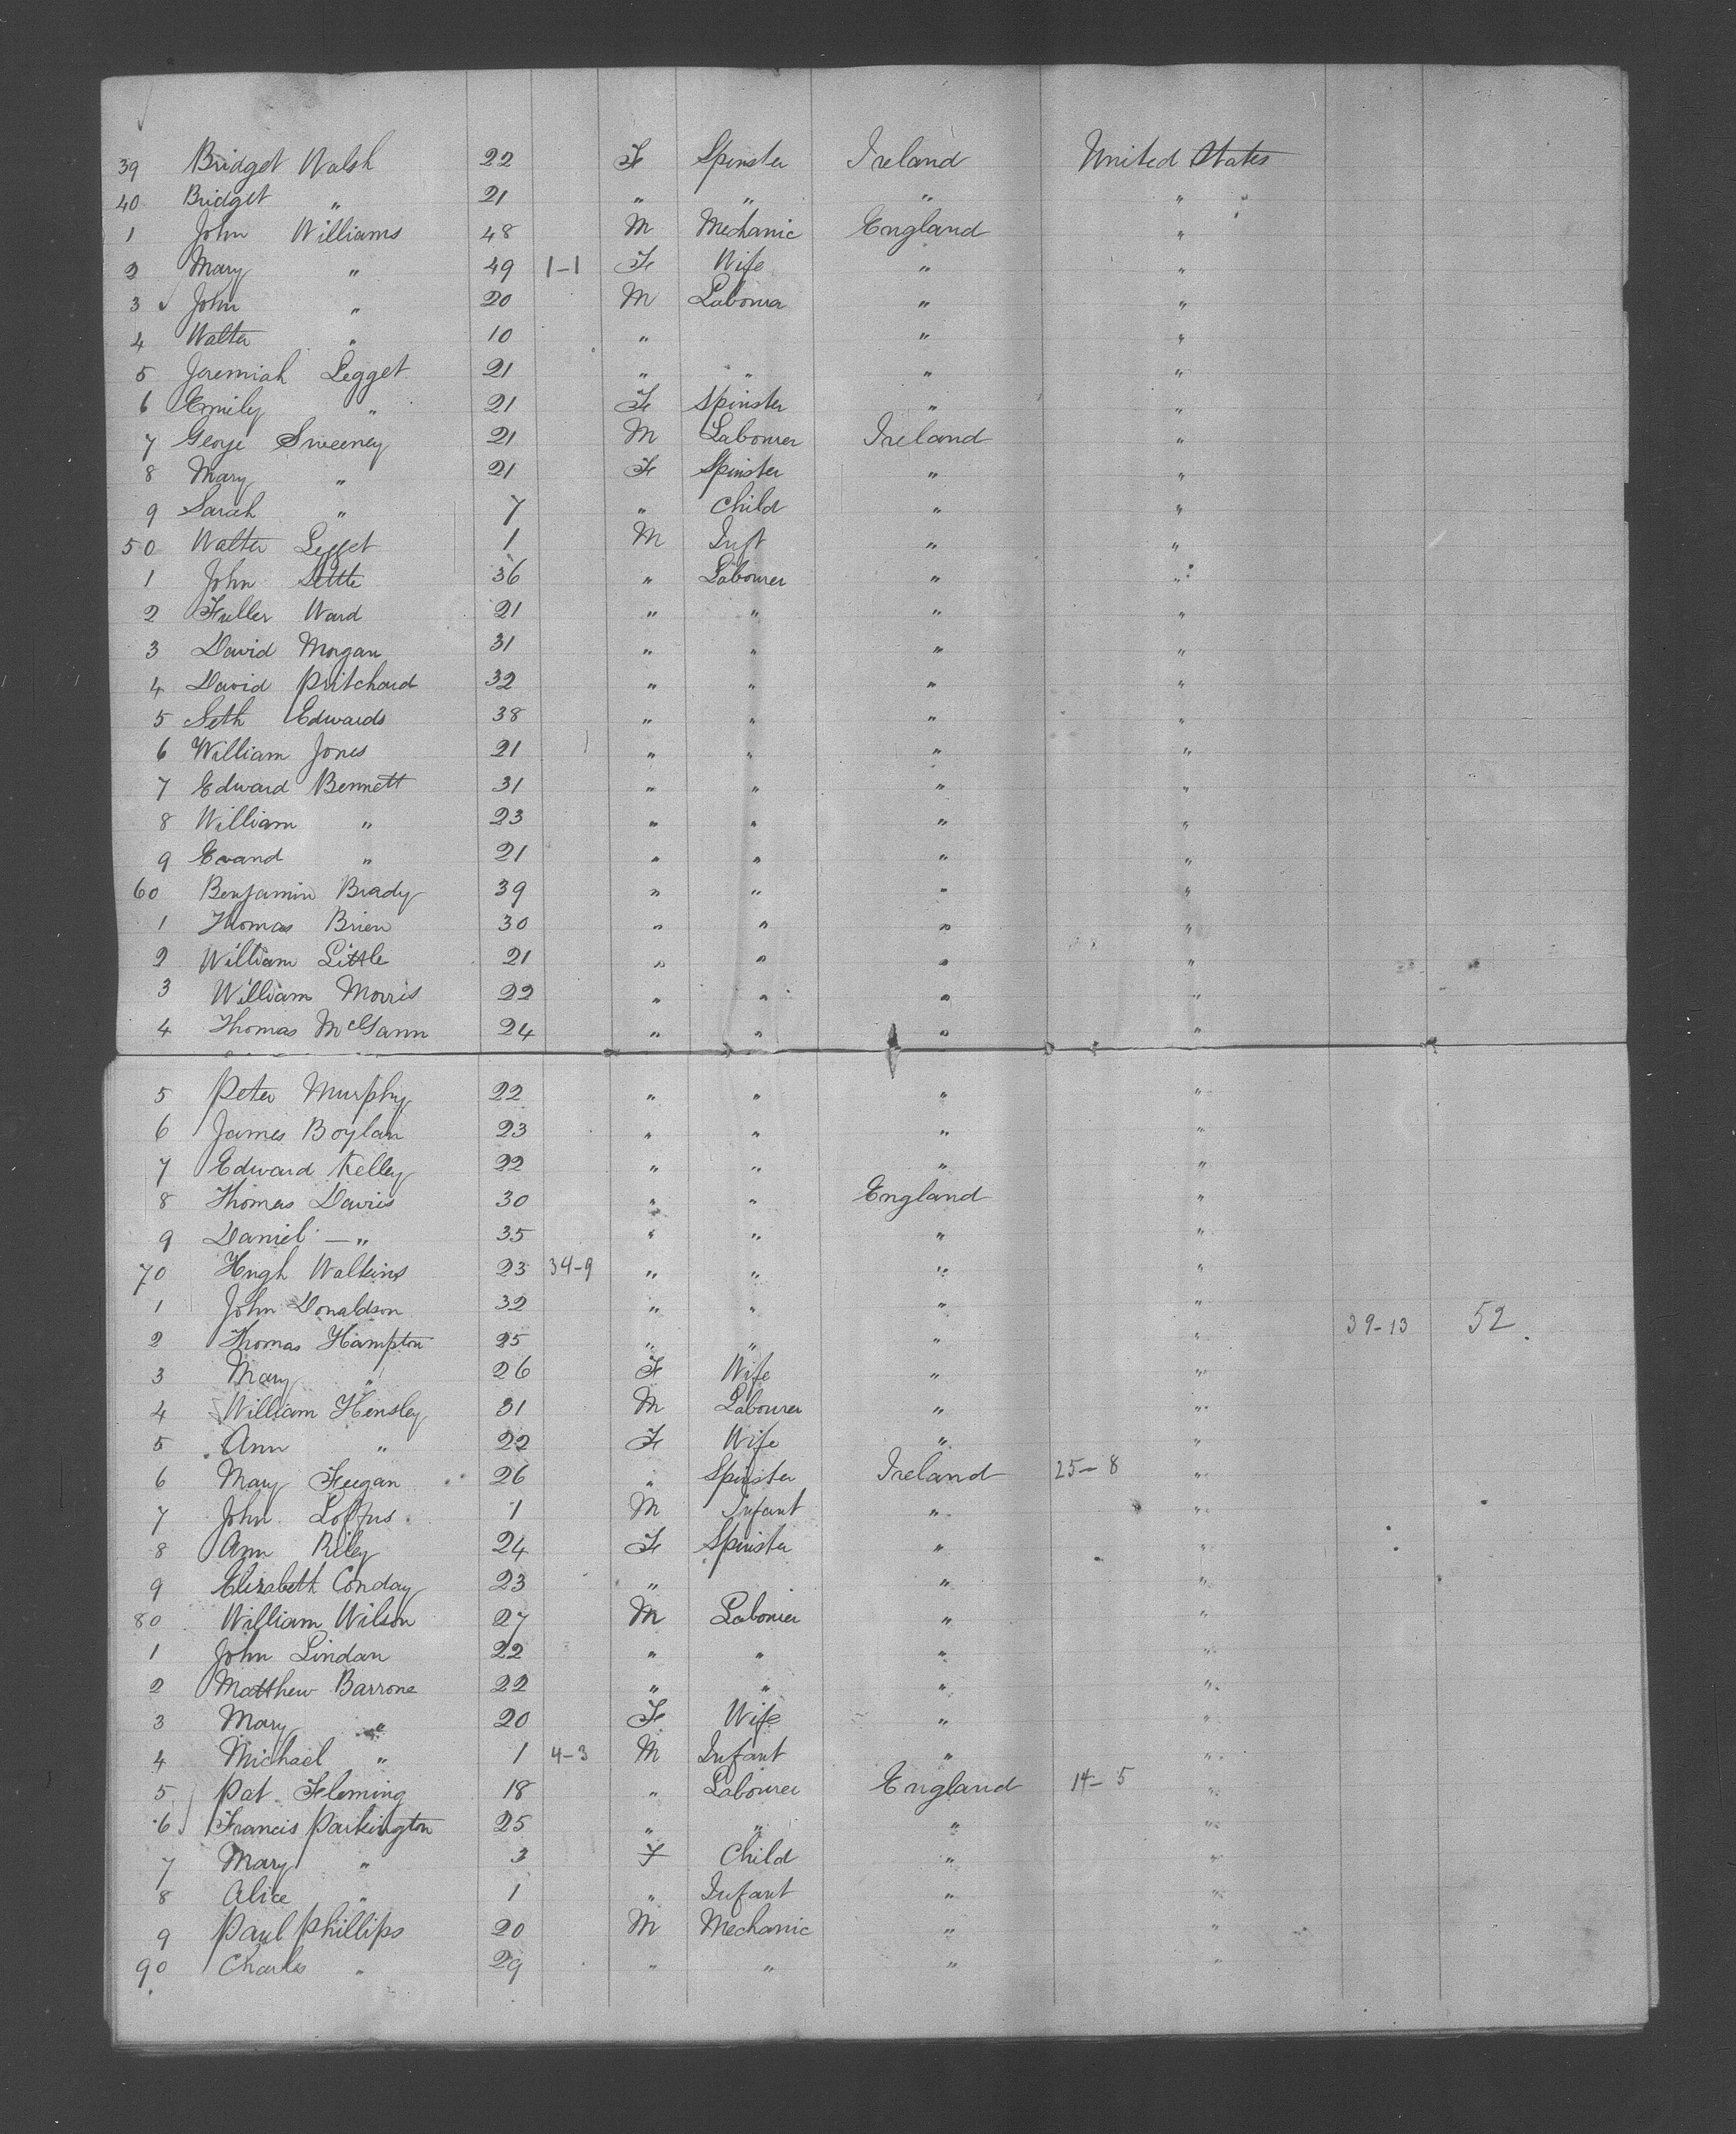 39 Bridget Walsh 22 F Spinster Ireland United States
40 Bridget " 21 " " " "
1 John Williams 48 M Mechanic England "
2 Mary " 49 1-1 F Wife " "
3 John " 20 M Labourer " "
4 Walter " 10 " " "
5 Jeremiah Legget 21 " " " "
6 Emily " 21 F Spinster " "
7 George Sweeney 21 M Labourer Ireland "
8 Mary " 21 F Spinster " "
9 Sarah " 7 " Child " "
50 Walter Legget 1 M Inft " "
1 John 36 " Labourer " "
2 Fuller Ward 21 " " " "
3 David Morgan 31 " " " "
4 David Pritchard 32 " " " "
5 Seth Edwards 38 " " " "
6 William Jones 21 " " " "
7 Edward Bennett 31 " " " "
8 William " 23 " " " "
9 Evand " 21 " " " "
60 Benjamin Brady 39 " " " "
1 Thomas Brien 30 " " " "
2 William Little 21 " " " "
3 William Morris 22 " " " "
4 Thomas McGann 24 " " " "
5 Peter Murphy 22 " " " "
6 James Boylan 23 " " " "
7 Edward Kelley 22 " " " "
8 Thomas Davis 30 " " England "
9 Daniel — " 35 " " " "
70 Hugh Watkins 23 34-9 " " " "
1 John Donaldson 32 " " " "
2 Thomas Hampton 25 " " " " 39-13 52
3 Mary " 26 F Wife " "
4 William Hensley 31 M Labourer " "
5 Ann " 22 F Wife " "
6 Mary Feegan 26 " Spinster Ireland 25-8 "
7 John Loftus 1 M Infant " "
8 Ann Riley 24 F Spinster " "
9 Elizabeth Conday 23 " " "
80 William Wilson 27 M Labourer " "
1 John Lindan 22 " " " "
2 Matthew Barrone 22 " " " "
3 Mary " 20 F Wife " "
4 Michael " 1 4-3 M Infant " "
5 Pat Fleming 18 " Labourer England 14-5 "
6 Francis Parkington 25 " " " "
7 Mary " 3 F Child " "
8 Alice " 1 " Infant " "
9 Paul Phillips 20 M Mechanic " "
90 Charles " 29 " " " "